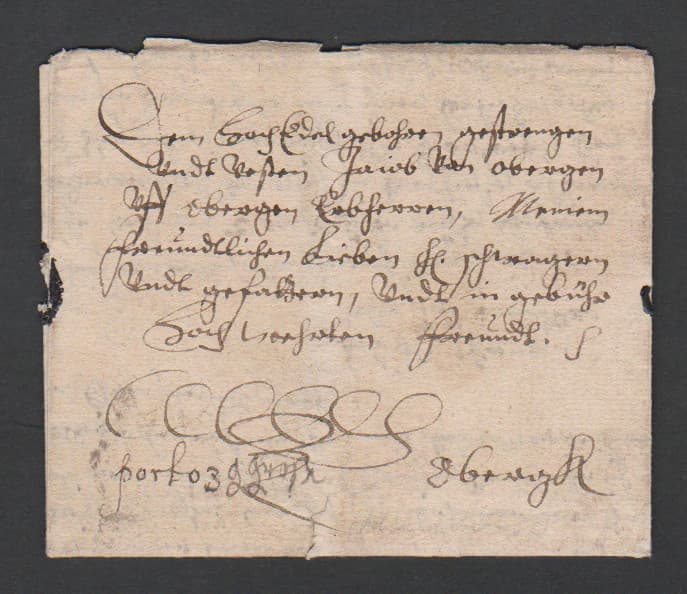 Dem HochEdel gebohren gestrengen
Undt Vesten Jacob Von Obergen
Uff Obergen Erbherren, Meniem
freundtlichen Lieben H schwagern
Undt gefattern, Undt in gebühr
Hoch Geehrten freundt.
porto 3 g
Obergk